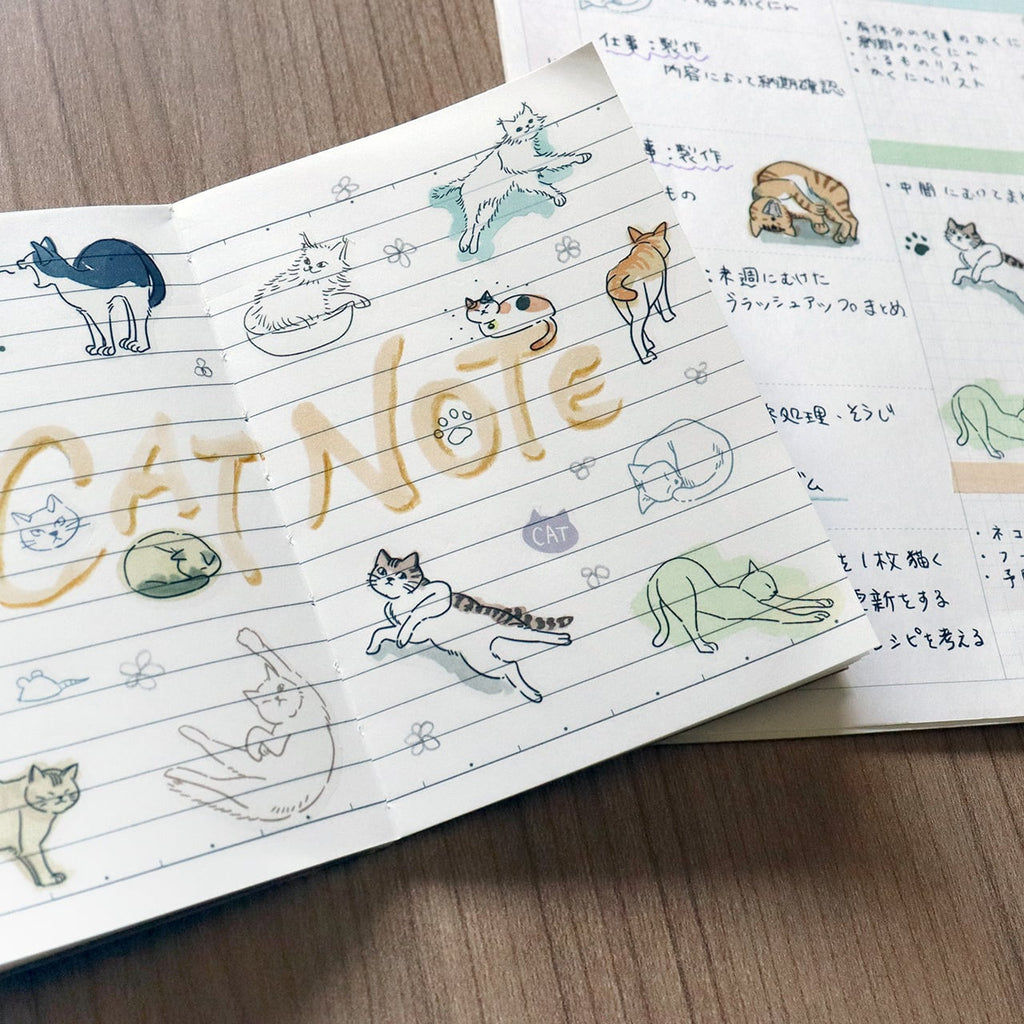 CAT NOTE
CAT
仕事:製作
内容によって納期確認
事:製作
もの
来週にむけた
ブラッシュアップのまとめ
処理・そうじ
ム
を1枚描く
更新をする
シピを考える
納期のかくにん
いるものリスト
・かくにんリスト
・中間にむけてま
・ネコ
・フ
・予